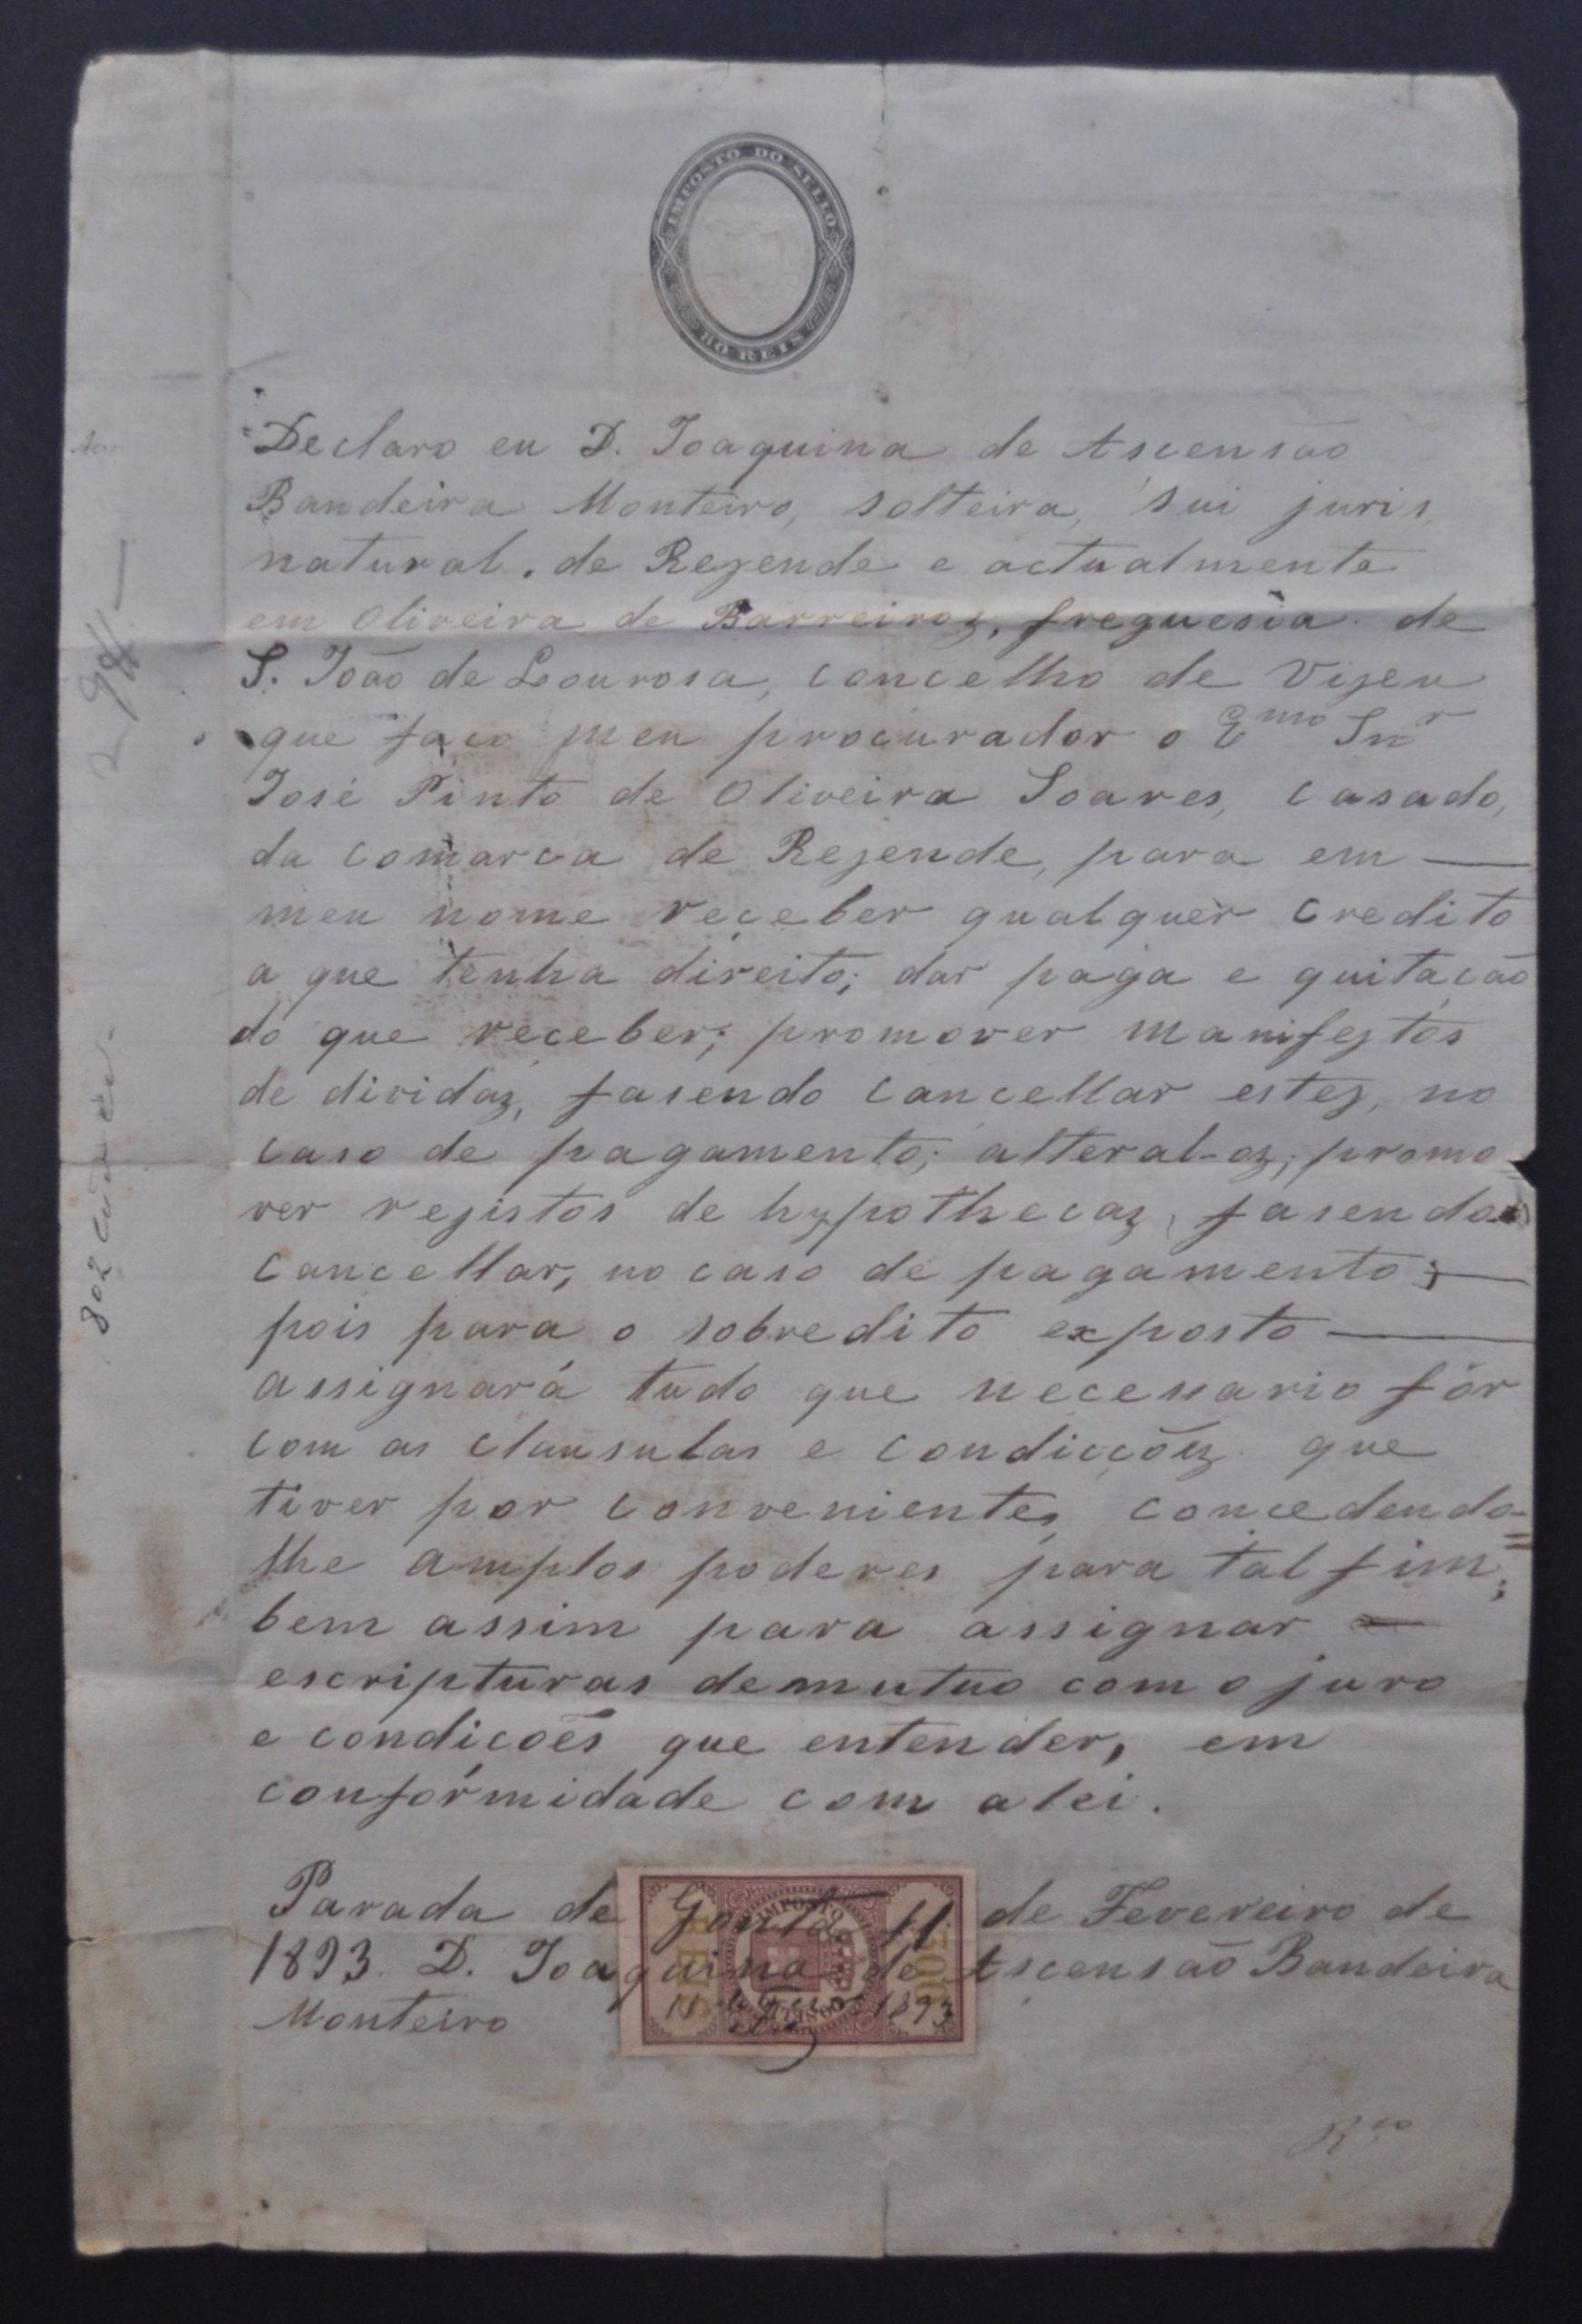 IMPOSTO DO SELLO
80 REIS
Declaro eu D. Joaquina de Ascensão
Bandeira Monteiro, solteira, sui juris,
natural. de Rezende e actualmente
em Oliveira de Barreiroz, freguesia de
S. João de Lourosa, concelho de Vizeu
que faço meu procurador o Emo Snr
José Pinto de Oliveira Soares, casado,
da comarca de Rezende, para em —
meu nome receber qualquer credito
a que tenha direito; dar paga e quitação
do que receber; promover manifeztos
de dividaz, fasendo cancellar estez, no
caso de pagamento; alteral-oz; promo
ver rejistos de hypothecaz, fasendo
cancellar, no caso de pagamento; —
pois para o sobredito exposto —
assignará tudo que necessario fôr
com as clausulas e condicçõiz que
tiver por convenientes, concedendo-
lhe amplos poderes para tal fim;
bem assim para assignar —
escripturas de mutuo com o juro
e condicões que entender, em
confórmidade com a lei.
Parada de Gonta 11 de Fevereiro de
1893. D. Joaquina de Ascensão Bandeira
Monteiro
IMPOSTO
11 1893
802